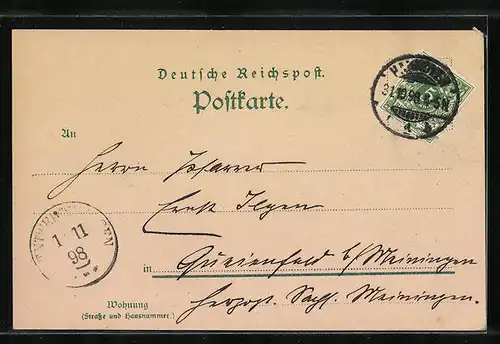 Deutsche Reichspost.
Postkarte.
An
Herrn Pfarrer
Ernst Ilgen
in Queienfeld b/ Meiningen
Herzogt. Sachs. Meiningen.
Wohnung
(Straße und Hausnummer.)
1 11
98